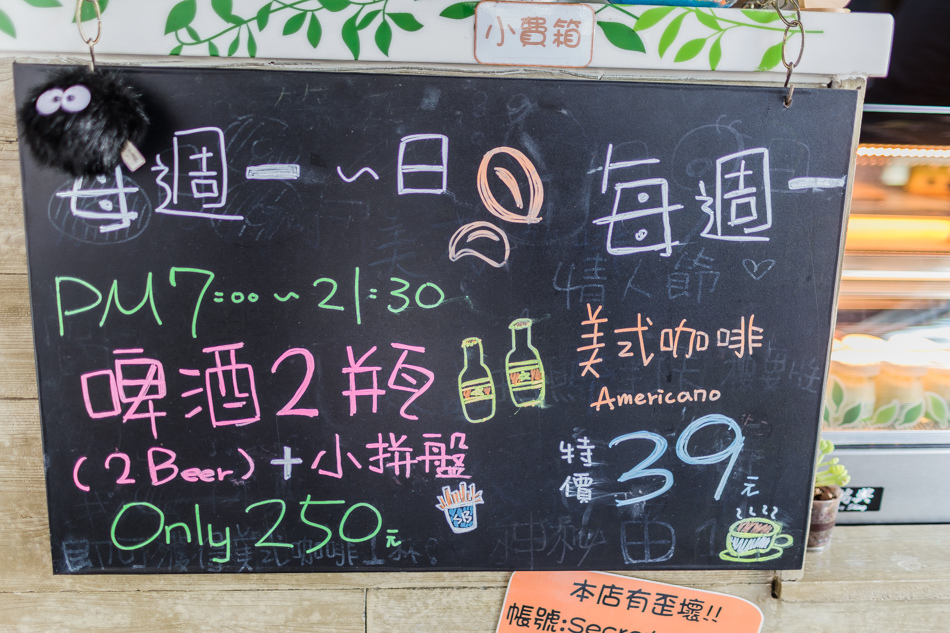 小費箱
每週一~日
PM 7:00~21:30
啤酒2瓶
(2Beer)+小拼盤
Only 250元
每週一
美式咖啡
Americano
特價 39元
情人節
本店有歪壞!!
帳號:Secre